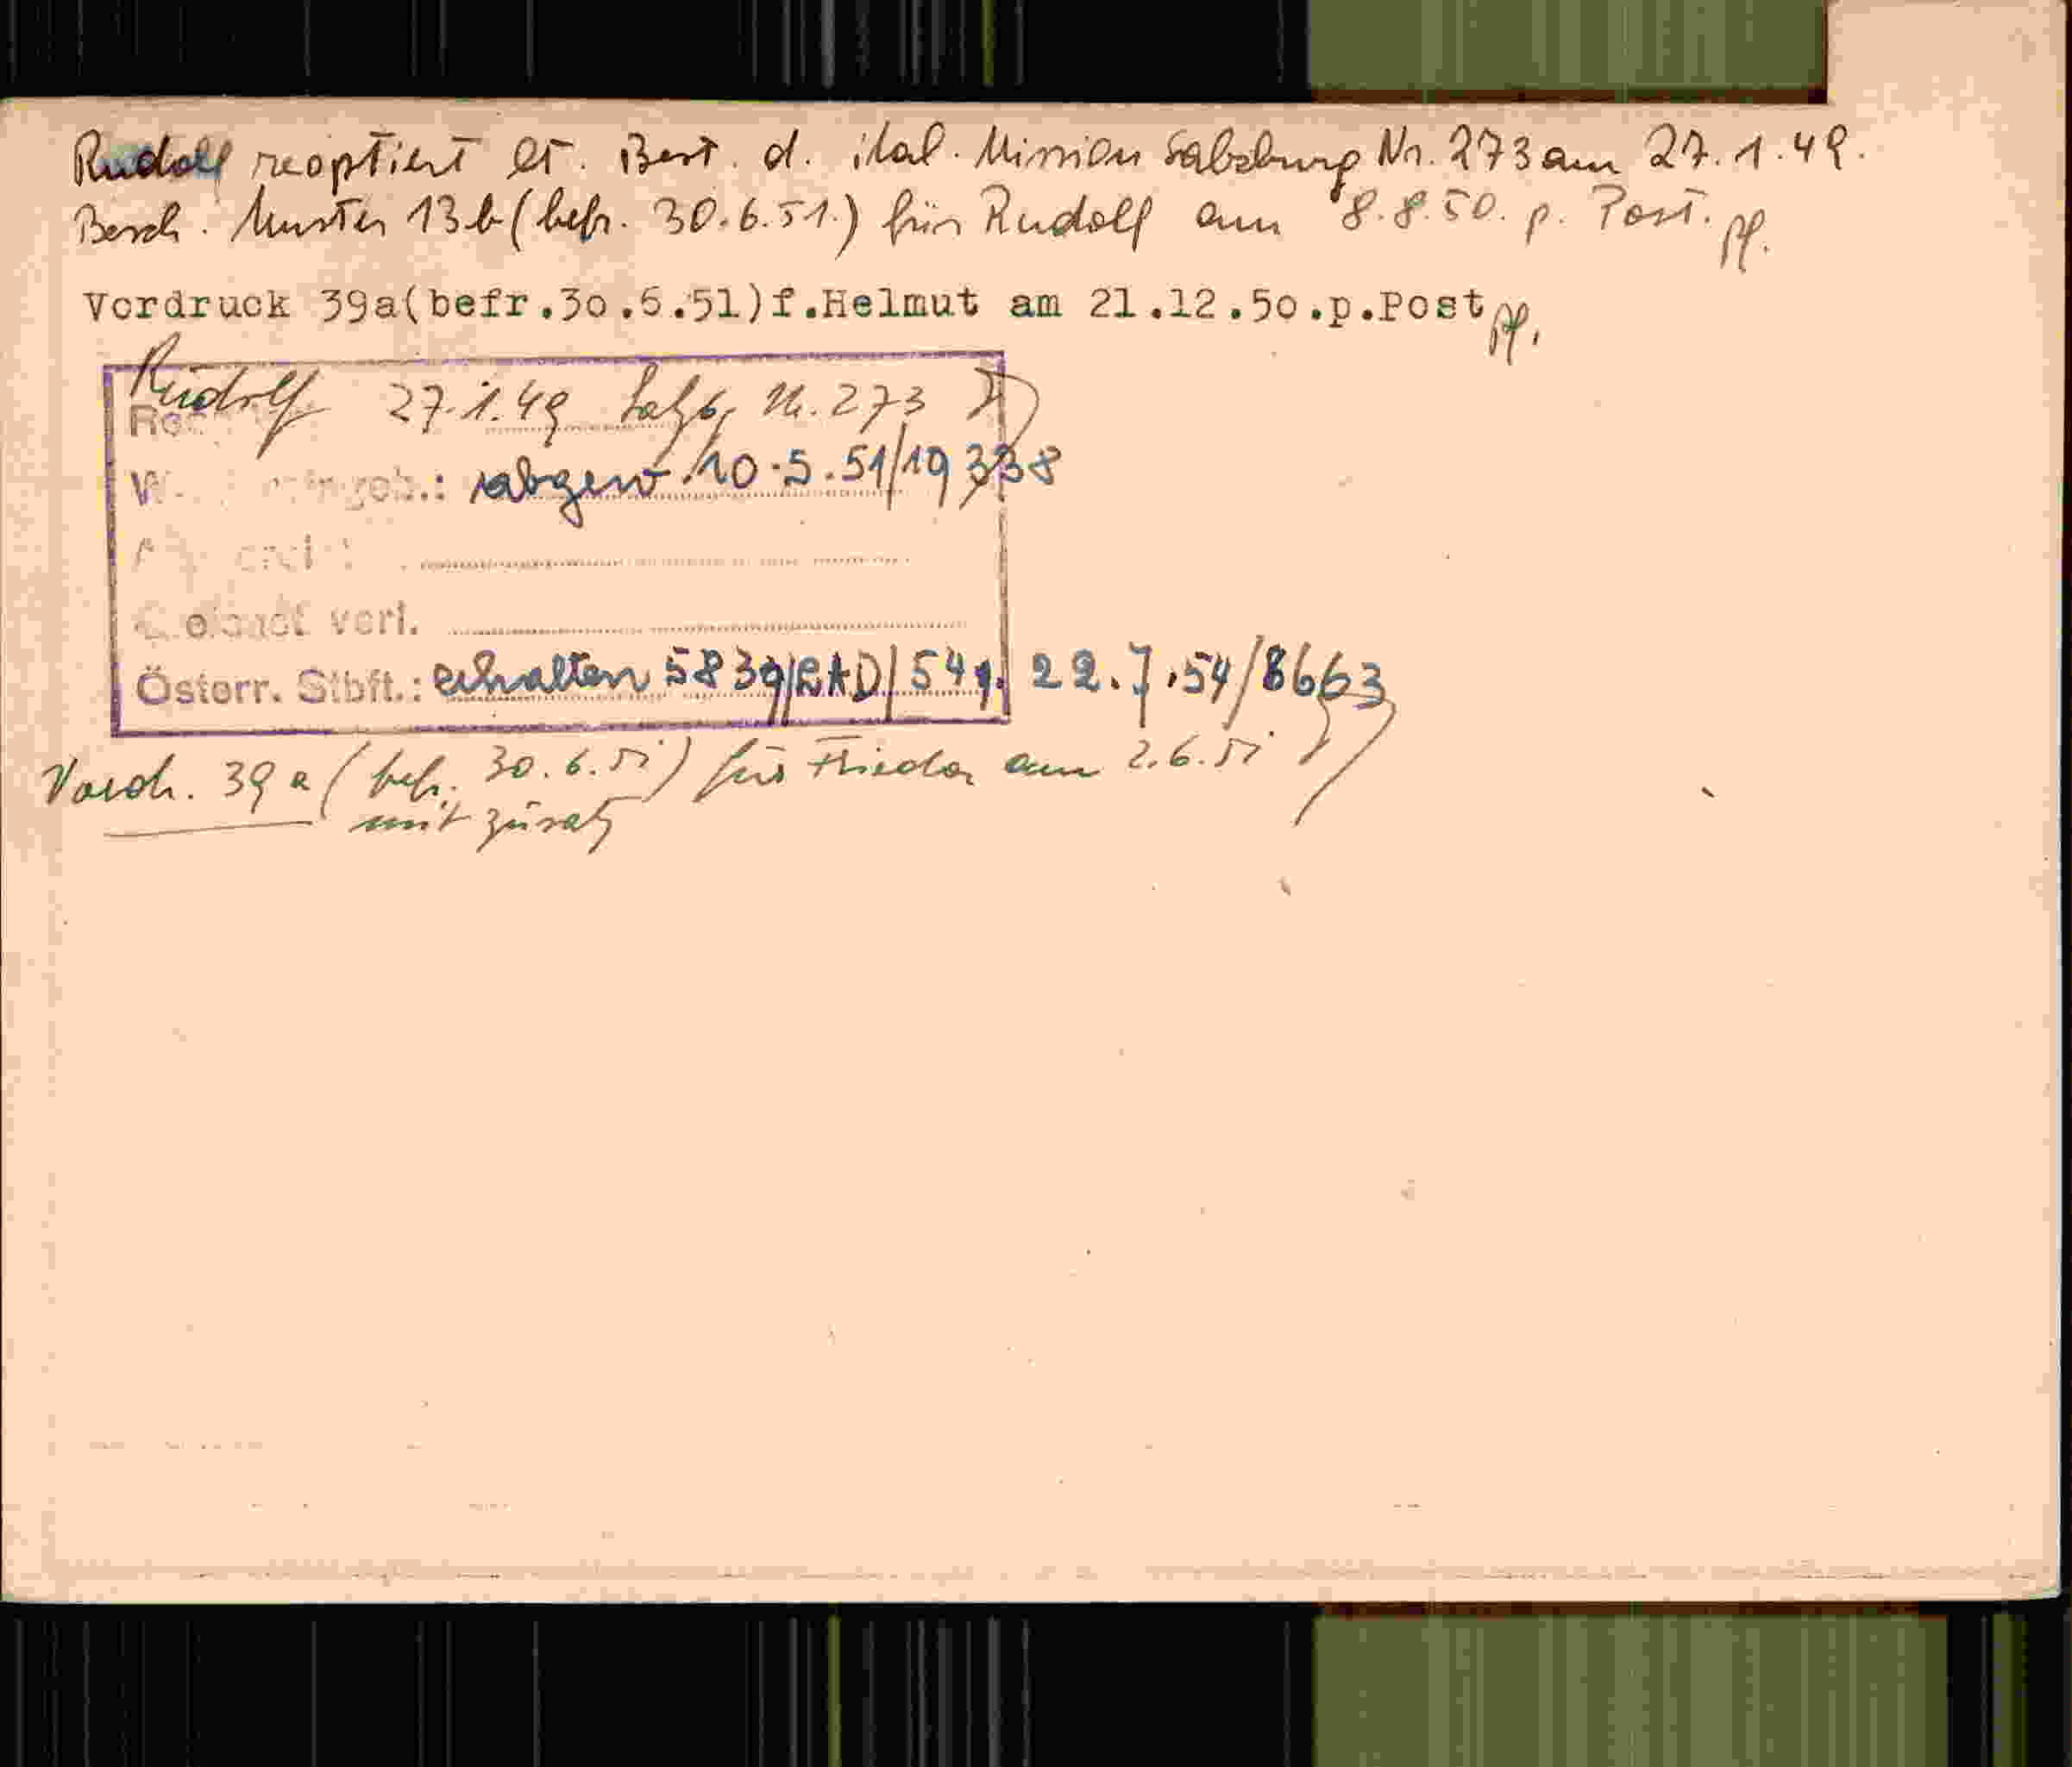 Rudolf reoptiert lt. Best. d. ital. Mission Salzburg Nr. 273 am 27.1.49.
Besch. Muster 13b (befr. 30.6.51.) für Rudolf am 8.8.50. p. Post. pf.
Vordruck 39a(befr.30.6.51)f.Helmut am 21.12.50.p.Post pf.
Rudolf 27.1.49 Salzb. Nr. 273
abgew. 10.5.51/19338
verl.
Österr. Stbft.: erhalten 5839/RAD/54 22.7.54/8663
Vordr. 39a (befr. 30.6.51) für Frieda am 2.6.51
mit Zusatz